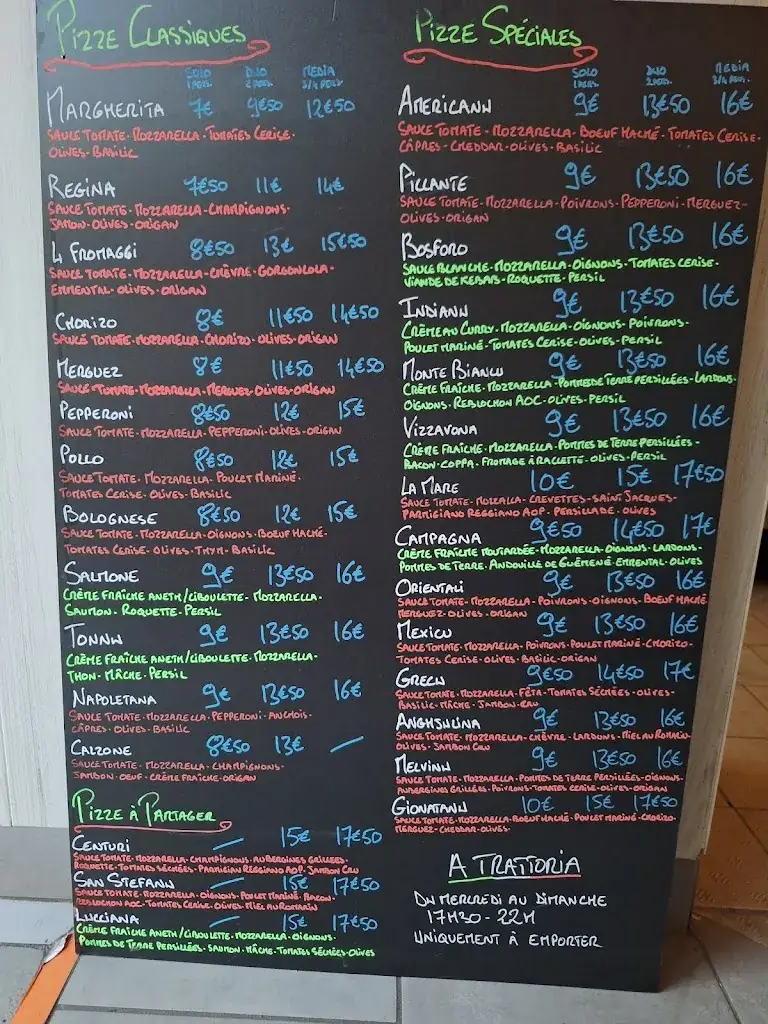 Pizze Classiques
SOLO DUO MEDIA
1 PERS. 2 PERS. 3/4 PERS.
MARGHERITA 7€ 9€50 12€50
SAUCE TOMATE - MOZZARELLA - TOMATES CERISE -
OLIVES - BASILIC
REGINA 7€50 11€ 14€
SAUCE TOMATE - MOZZARELLA - CHAMPIGNONS -
JAMBON - OLIVES - ORIGAN
4 FROMAGGI 8€50 13€ 15€50
SAUCE TOMATE - MOZZARELLA - CHÈVRE - GORGONZOLA -
EMMENTAL - OLIVES - ORIGAN
CHORIZO 8€ 11€50 14€50
SAUCE TOMATE - MOZZARELLA - CHORIZO - OLIVES - ORIGAN
MERGUEZ 8€ 11€50 14€50
SAUCE TOMATE - MOZZARELLA - MERGUEZ - OLIVES - ORIGAN
PEPPERONI 8€50 12€ 15€
SAUCE TOMATE - MOZZARELLA - PEPPERONI - OLIVES - ORIGAN
POLLO 8€50 12€ 15€
SAUCE TOMATE - MOZZARELLA - POULET MARINÉ -
TOMATES CERISE - OLIVES - BASILIC
BOLOGNESE 8€50 12€ 15€
SAUCE TOMATE - MOZZARELLA - OIGNONS - BOEUF HACHÉ -
TOMATES CERISE - OLIVES - THYM - BASILIC
SALMONE 9€ 13€50 16€
CRÈME FRAÎCHE ANETH/CIBOULETTE - MOZZARELLA -
SAUMON - ROQUETTE - PERSIL
TONNU 9€ 13€50 16€
CRÈME FRAÎCHE ANETH/CIBOULETTE - MOZZARELLA -
THON - MÂCHE - PERSIL
NAPOLETANA 9€ 13€50 16€
SAUCE TOMATE - MOZZARELLA - PEPPERONI - ANCHOIS -
CÂPRES - OLIVES - BASILIC
CALZONE 8€50 13€ —
SAUCE TOMATE - MOZZARELLA - CHAMPIGNONS -
JAMBON - OEUF - CRÈME FRAÎCHE - ORIGAN
PIZZE À PARTAGER
CENTURI — 15€ 17€50
SAUCE TOMATE - MOZZARELLA - CHAMPIGNONS - AUBERGINES GRILLÉES -
ROQUETTE - TOMATES SÉCHÉES - PARMIGIAN REGGIANO AOP - JAMBON CRU
SAN STEFANU — 15€ 17€50
SAUCE TOMATE - MOZZARELLA - OIGNONS - POULET MARINÉ - BACON -
REBLOCHON AOC - TOMATES CERISE - OLIVES - MIEL AU ROMARIN
LUCCIANA — 15€ 17€50
CRÈME FRAÎCHE ANETH/CIBOULETTE - MOZZARELLA - OIGNONS -
POMMES DE TERRE PERSILLÉES - SAUMON - MÂCHE - TOMATES SÉCHÉES - OLIVES
PIZZE SPÉCIALES
SOLO DUO MEDIA
1 PERS. 2 PERS. 3/4 PERS.
AMERICANU 9€ 13€50 16€
SAUCE TOMATE - MOZZARELLA - BOEUF HACHÉ - TOMATES CERISE -
CÂPRES - CHEDDAR - OLIVES - BASILIC
PICCANTE 9€ 13€50 16€
SAUCE TOMATE - MOZZARELLA - POIVRONS - PEPPERONI - MERGUEZ -
OLIVES - ORIGAN
BOSFORO 9€ 13€50 16€
SAUCE BLANCHE - MOZZARELLA - OIGNONS - TOMATES CERISE -
VIANDE DE KEBAB - ROQUETTE - PERSIL
INDIANU 9€ 13€50 16€
CRÈME AU CURRY - MOZZARELLA - OIGNONS - POIVRONS -
POULET MARINÉ - TOMATES CERISE - OLIVES - PERSIL
MONTE BIANCU 9€ 13€50 16€
CRÈME FRAÎCHE - MOZZARELLA - POMMES DE TERRE PERSILLÉES - LARDONS -
OIGNONS - REBLOCHON AOC - OLIVES - PERSIL
VIZZAVONA 9€ 13€50 16€
CRÈME FRAÎCHE - MOZZARELLA - POMMES DE TERRE PERSILLÉES -
BACON - COPPA - FROMAGE À RACLETTE - OLIVES - PERSIL
LA MARE 10€ 15€ 17€50
SAUCE TOMATE - MOZZALLA - CREVETTES - SAINT JACQUES -
PARMIGIANO REGGIANO AOP - PERSILLADE - OLIVES
CAMPAGNA 9€50 14€50 17€
CRÈME FRAÎCHE MOUTARDÉE - MOZZARELLA - OIGNONS - LARDONS -
POMMES DE TERRE - ANDOUILLE DE GUÉMENÉ - EMMENTAL - OLIVES
ORIENTALI 9€ 13€50 16€
SAUCE TOMATE - MOZZARELLA - POIVRONS - OIGNONS - BOEUF HACHÉ
MERGUEZ - OLIVES - ORIGAN
MEXICU 9€ 13€50 16€
SAUCE TOMATE - MOZZARELLA - POIVRONS - POULET MARINÉ - CHORIZO -
TOMATES CERISE - OLIVES - BASILIC - ORIGAN
GRECU 9€50 14€50 17€
SAUCE TOMATE - MOZZARELLA - FÊTA - TOMATES SÉCHÉES - OLIVES -
BASILIC - MÂCHE - JAMBON CRU
ANGHJULINA 9€ 13€50 16€
SAUCE TOMATE - MOZZARELLA - CHÈVRE - LARDONS - MIEL AU ROMARIN
OLIVES - JAMBON CRU
MELVINU 9€ 13€50 16€
SAUCE TOMATE - MOZZARELLA - POMMES DE TERRE PERSILLÉES - OIGNONS -
AUBERGINES GRILLÉES - POIVRONS - TOMATES CERISE - OLIVES - ORIGAN
GIONATANU 10€ 15€ 17€50
SAUCE TOMATE - MOZZARELLA - BOEUF HACHÉ - POULET MARINÉ - CHORIZO -
MERGUEZ - CHEDDAR - OLIVES -
A TRATTORIA
DU MERCREDI AU DIMANCHE
17H30 - 22H
UNIQUEMENT À EMPORTER